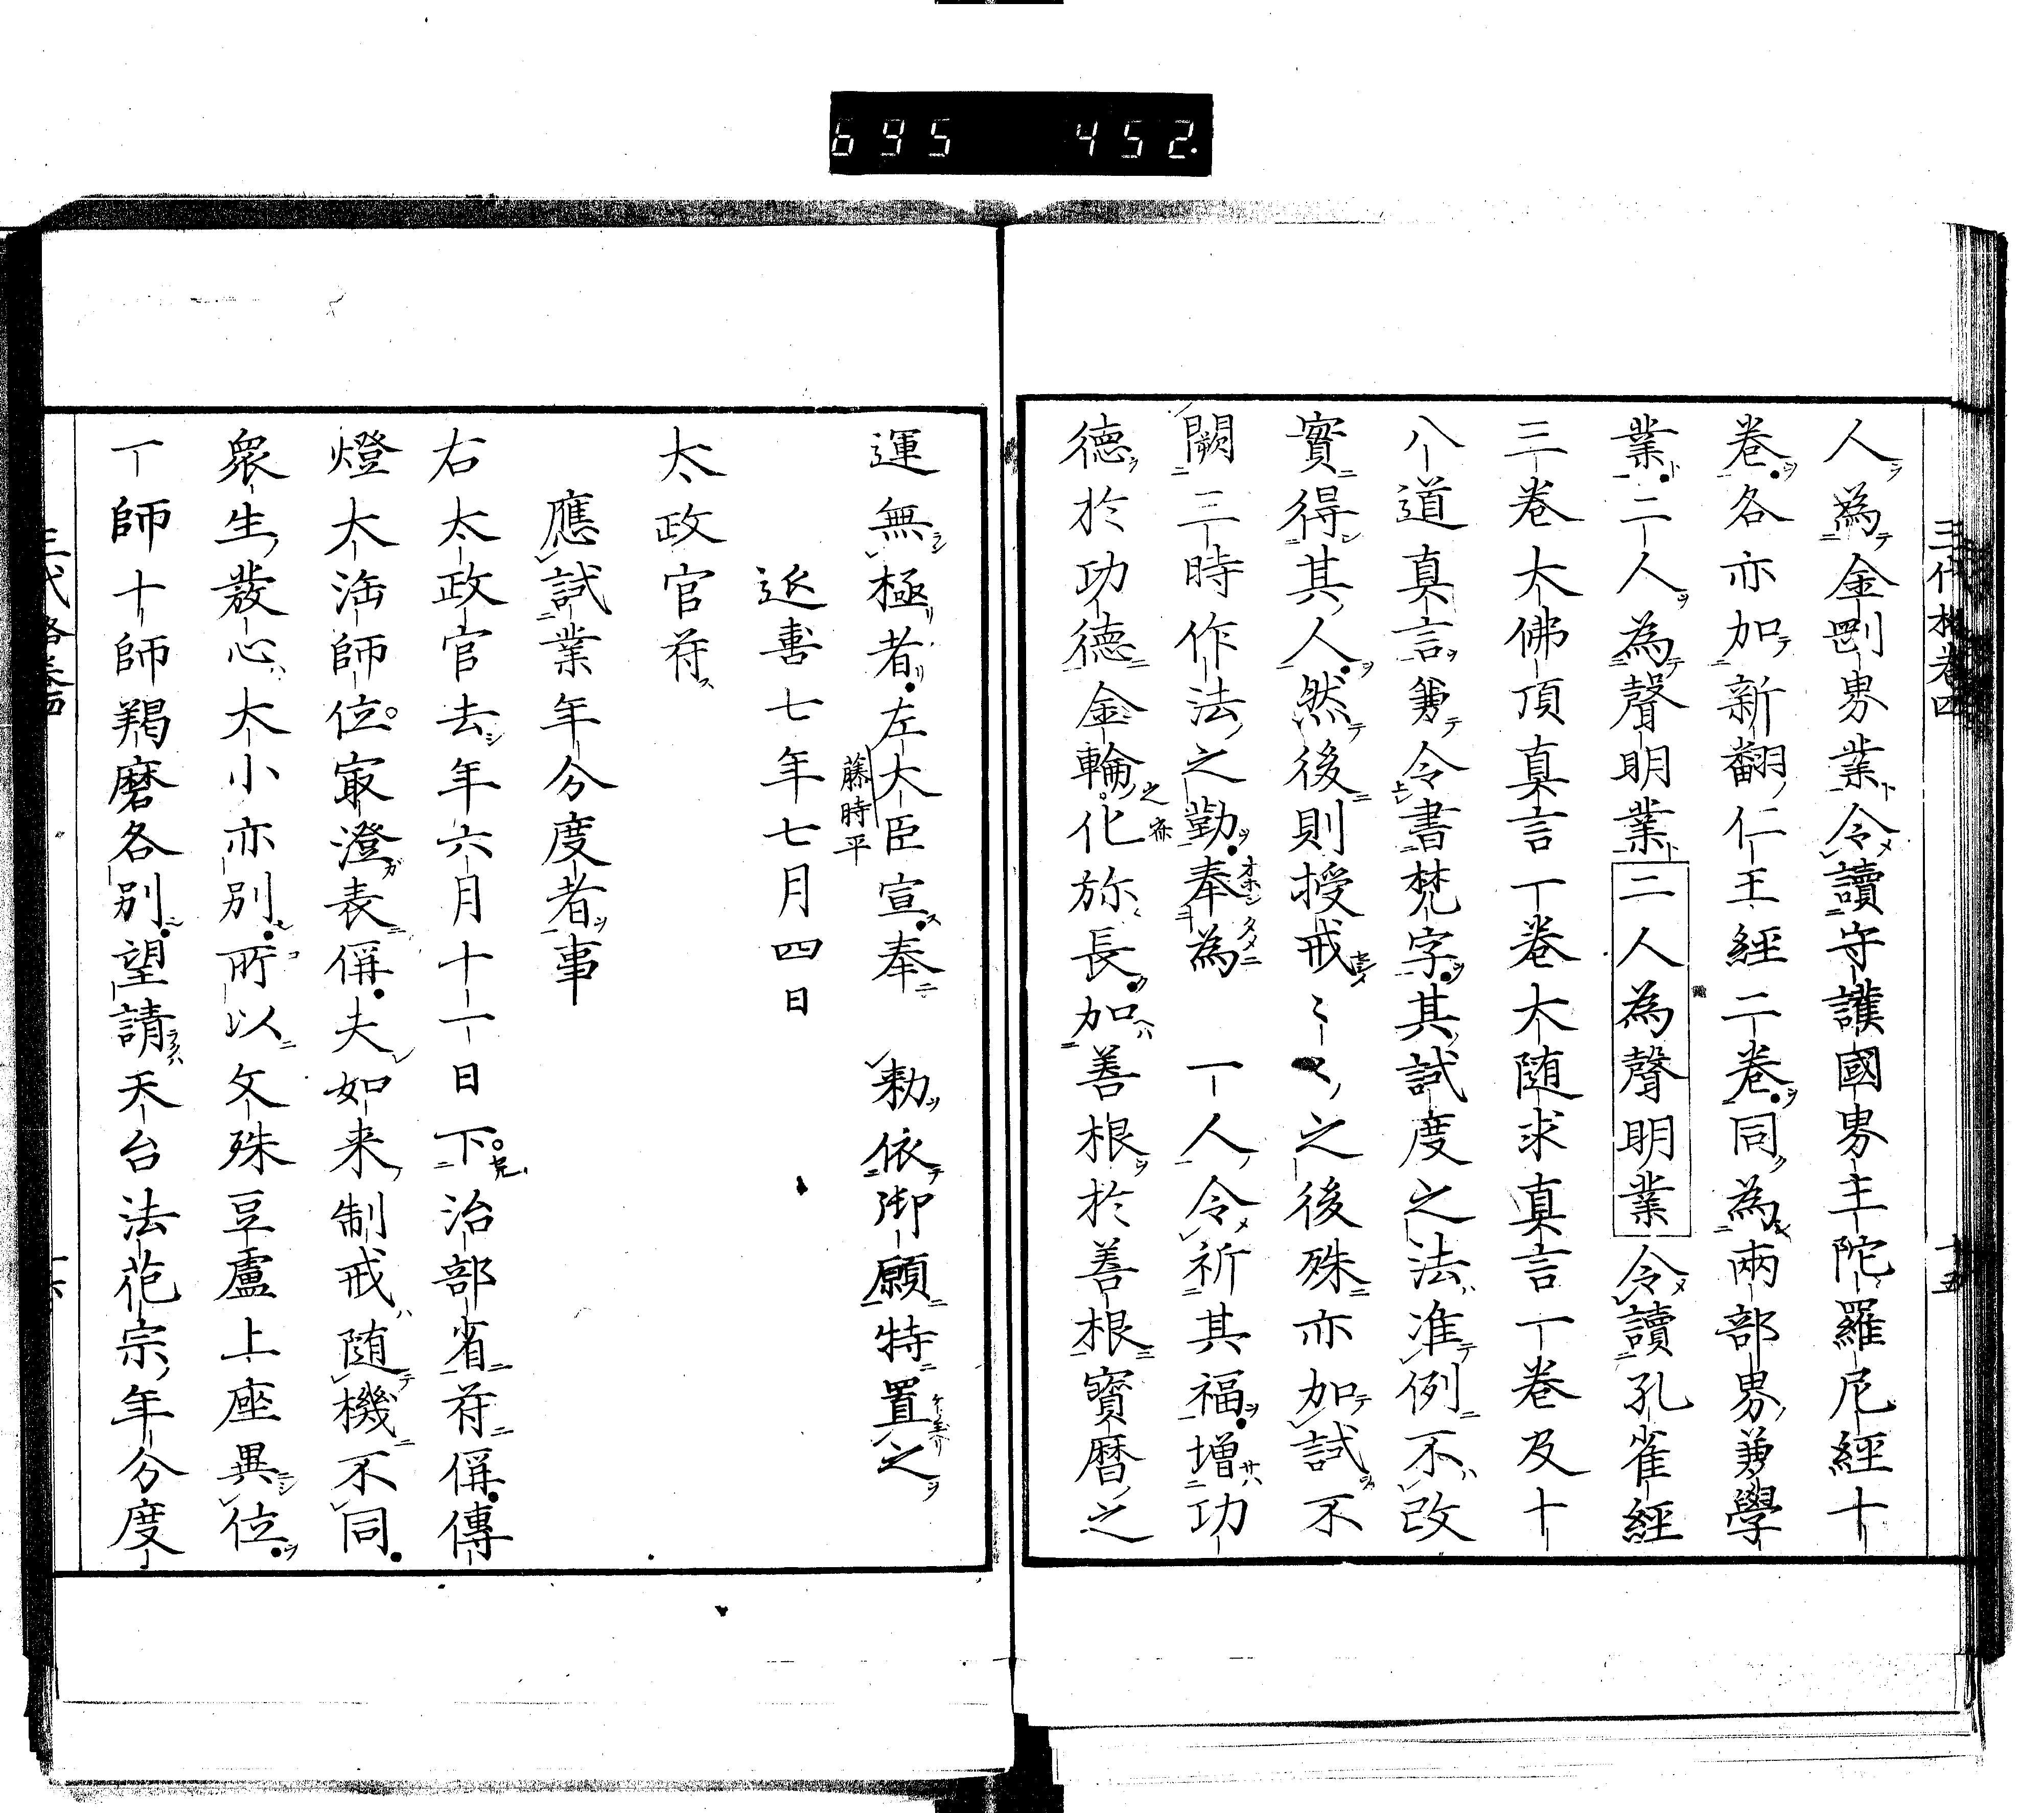 695 452
三代格卷四 十五
人為金剛界業令讀守護國界主陀羅尼經十
卷各亦加新翻仁王經二卷同為兩部界兼學
業二人為聲明業二人為聲明業令讀孔雀經
三卷大佛頂真言一卷大随求真言一卷及十
八道真言兼令書梵字其試度之法准例不改
實得其人然後則授戒〻〻之後殊亦加試不
闕三時作法之勤奉為 一人令祈其福增功
德於功德金輪之化旅長加善根於善根寳暦之
運無極者左大臣宣奉 勅依御願特置之
藤時平
延喜七年七月四日
太政官符
應試業年分度者事
右太政官去年六月十一日下治部省符偁傳
燈大法師位最澄表偁夫如来制戒随機不同
衆生發心大小亦別所以文殊豆盧上座異位
一師十師羯磨各別望請天台法花宗年分度
三代格卷四